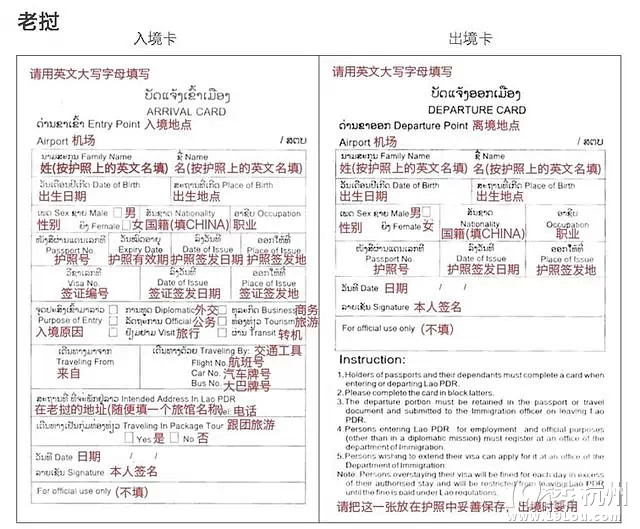 老挝
入境卡
请用英文大写字母填写
ບັດແຈ້ງເຂົ້າເມືອງ
ARRIVAL CARD
ດ່ານຂາເຂົ້າ Entry Point 入境地点
Airport 机场 / ສຕບ
ນາມສະກຸນ Family Name ຊື່ Name
姓(按护照上的英文名填) 名(按护照上的英文名填)
ວັນເດືອນປີເກີດ Date of Birth ສະຖານທີ່ເກີດ Place of Birth
出生日期 出生地点
ເພດ Sex ຊາຍ Male 男 ສັນຊາດ Nationality ອາຊີບ Occupation
性别 ຍິງ Female 女 国籍(填CHINA) 职业
ໜັງສືຜ່ານແດນເລກທີ ວັນໝົດອາຍຸ ລົງວັນທີ ອອກໃຫ້ທີ່
Passport No Expiry Date Date of Issue Place of Issue
护照号 护照有效期 护照签发日期 护照签发地
ວີຊາເລກທີ ລົງວັນທີ ອອກໃຫ້ທີ່
Visa No Date of Issue Place of Issue
签证编号 签证签发日期 签证签发地
ຈຸດປະສົງເຂົ້າມາລາວ ການທູດ Diplomatic 外交 ທຸລະກິດ Business 商务
Purpose of Entry ລັດຖະການ Official 公务 ທ່ອງທ່ຽວ Tourism 旅游
入境原因 ຢ້ຽມຢາມ Visit 旅行 ຜ່ານ Transit 转机
ເດີນທາງມາຈາກ ເດີນທາງດ້ວຍ Traveling By: 交通工具
Traveling From Flight No 航班号
来自 Car No. 汽车牌号
Bus No. 大巴牌号
ສະຖານທີ່ ທີ່ຈະພັກຢູ່ລາວ Intended Address In Lao PDR
在老挝的地址(随便填一个旅馆名称) Tel: 电话
ເດີນທາງເປັນກຸ່ມທ່ອງທ່ຽວ Traveling In Package Tour 跟团旅游
Yes 是 No 否
ວັນທີ Date 日期 / /
ລາຍເຊັນ Signature 本人签名
For official use only (不填)
出境卡
请用英文大写字母填写
ບັດແຈ້ງອອກເມືອງ
DEPARTURE CARD
ດ່ານຂາອອກ Departure Point 离境地点
Airport 机场 / ສຕບ
ນາມສະກຸນ Family Name ຊື່ Name
姓(按护照上的英文名填) 名(按护照上的英文名填)
ວັນເດືອນປີເກີດ Date of Birth ສະຖານທີ່ເກີດ Place of Birth
出生日期 出生地点
ເພດ Sex ຊາຍ Male 男 ສັນຊາດ ອາຊີບ
性别 ຍິງ Female 女 Nationality Occupation
国籍(填CHINA) 职业
ໜັງສືຜ່ານແດນເລກທີ ລົງວັນທີ ອອກໃຫ້ທີ່
Passport No. Date of Issue Place of Issue
护照号 护照签发日期 护照签发地
ວັນທີ Date 日期 / /
ລາຍເຊັນ Signature 本人签名
For official use only (不填)
Instruction:
1.Holders of passports and their dependants must complete a card when
entering or departing Lao PDR.
2.Please complete the card in block latters.
3.The departure portion must be retained in the passport or travel
document and submitted to the Immigration officer on leaving Lao
PDR.
4 Persons entering Lao PDR for employment and official purposes
(other than in a diplomatic mission) must register at an office of the
department of Immigration.
5.Persons wishing to extend their visa can apply for it at an office of the
Department of Immigration:
Note. Persons overstaying their visa will be fined for each day in excess
of their authorised stay and will be restricted from leaving Lao PDR
until the fine is paid under Lao regulations.
请把这一张放在护照中妥善保存，出境时要用
19楼杭州
www.19lou.com